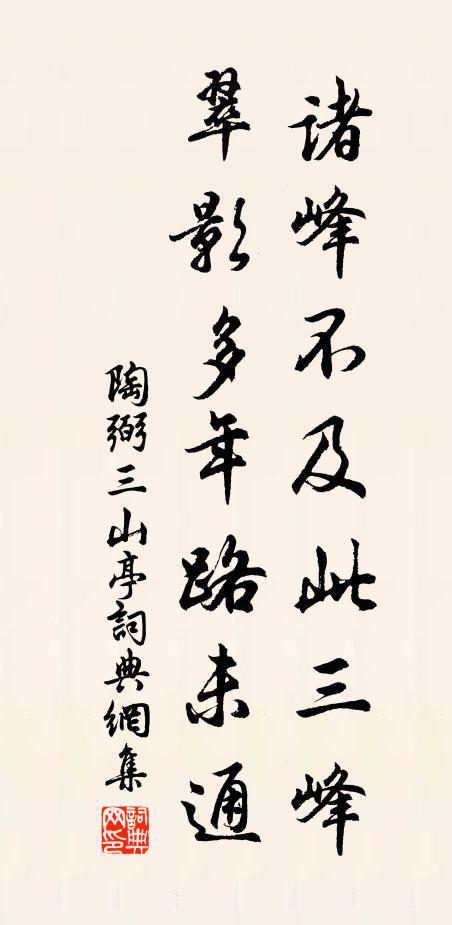 諸峰不及此三峰
翠影多年路未通
陶弼三山亭詞典網集
詞典網印